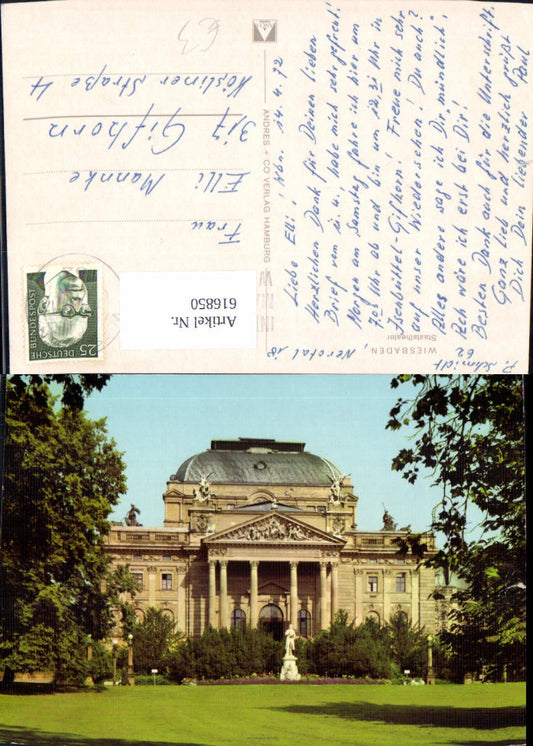 P. Schmidt
62
WIESBADEN, Nerotal 18
Staatstheater
Liebe Elli! Wbn. 14.4.72
Herzlichen Dank für Deinen lieben
Brief vom
habe mich sehr gefreut!
Morgen am Samstag fahre ich hier um
Uhr ab und bin um 12,32 Uhr in
Isenbüttel-Gifhorn! Freue mich sehr
auf unser Wiedersehen! Du auch?
Alles andere sage ich Dir mündlich;
ich wäre ich erst bei Dir!
Besten Dank auch für die Unterschrift.
Ganz lieb und herzlich grüßt
Dich Dein liebender Paul
ANDRES + CO VERLAG HAMBURG
Frau
Elli Mannke
317 Gifhorn
Kösliner Straße 4
DEUTSCHE BUNDESPOST
25
Artikel Nr.
616850
€3